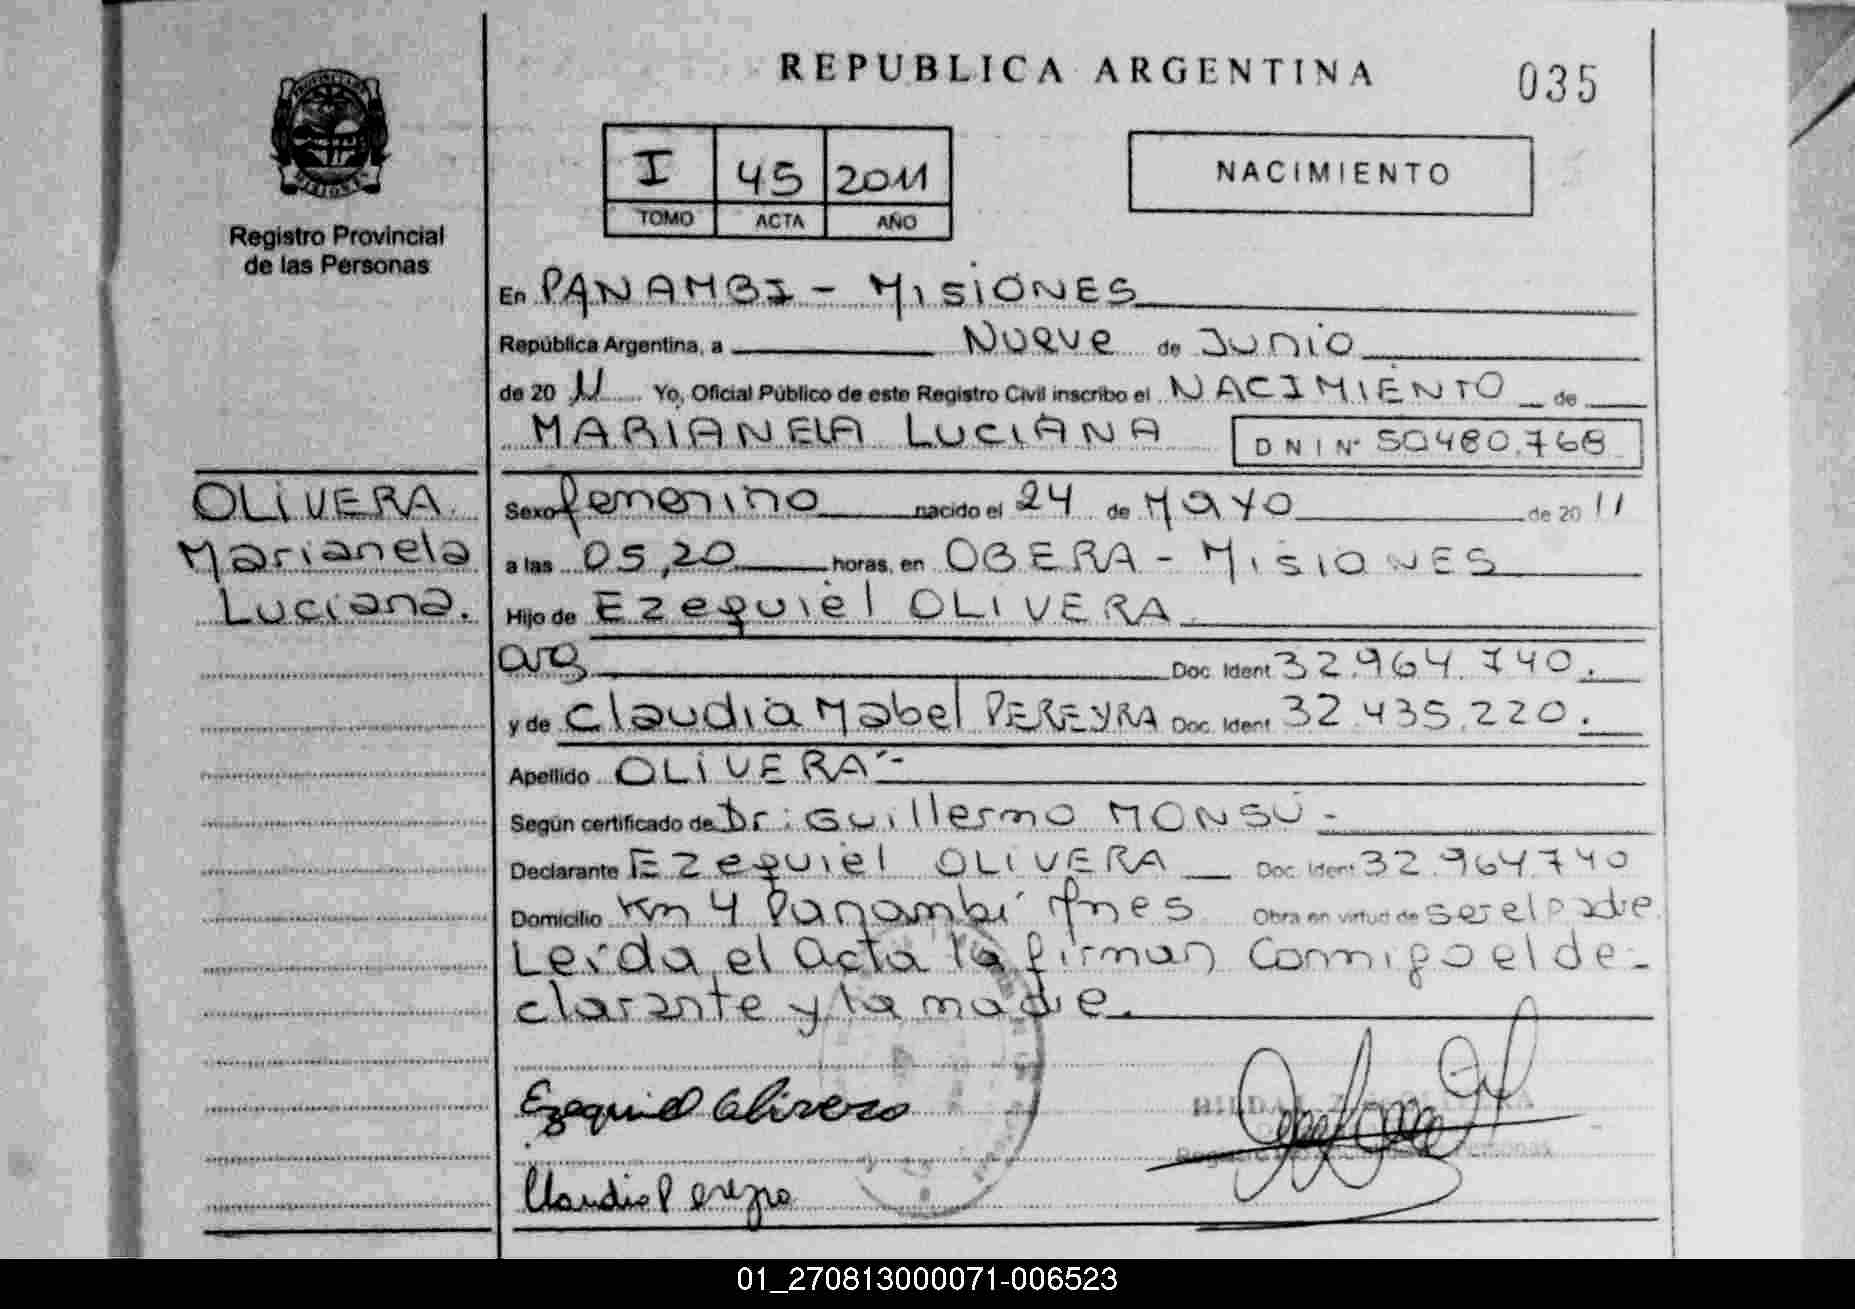 REPUBLICA ARGENTINA
035
I 45 2011
TOMO ACTA AÑO
NACIMIENTO
MISIONES
Registro Provincial
de las Personas
En PANAMBI - MISIONES
República Argentina, a Nueve de Junio
de 20 11 Yo, Oficial Público de este Registro Civil inscribo el NACIMIENTO de
MARIANELA LUCIANA DNI Nº 50480.768
OLIVERA
Marianela
Luciana.
Sexo femenino nacido el 24 de MAYO de 20 11
a las 05,20 horas, en OBERA - MISIONES
Hijo de Ezequiel OLIVERA
arg Doc. Ident 32.964.740.
y de Claudia Mabel PEREYRA Doc. Ident 32.435.220.
Apellido OLIVERA -
Según certificado de Dr: Guillermo MONSÚ -
Declarante Ezequiel OLIVERA Doc. Ident 32.964740
Domicilio Km 4 Panambí Mnes Obra en virtud de ser el padre
Leída el acta la firman conmigo el de-
clarante y la madre.
Ezequiel Olivera
Claudia Pereyra
01_270813000071-006523